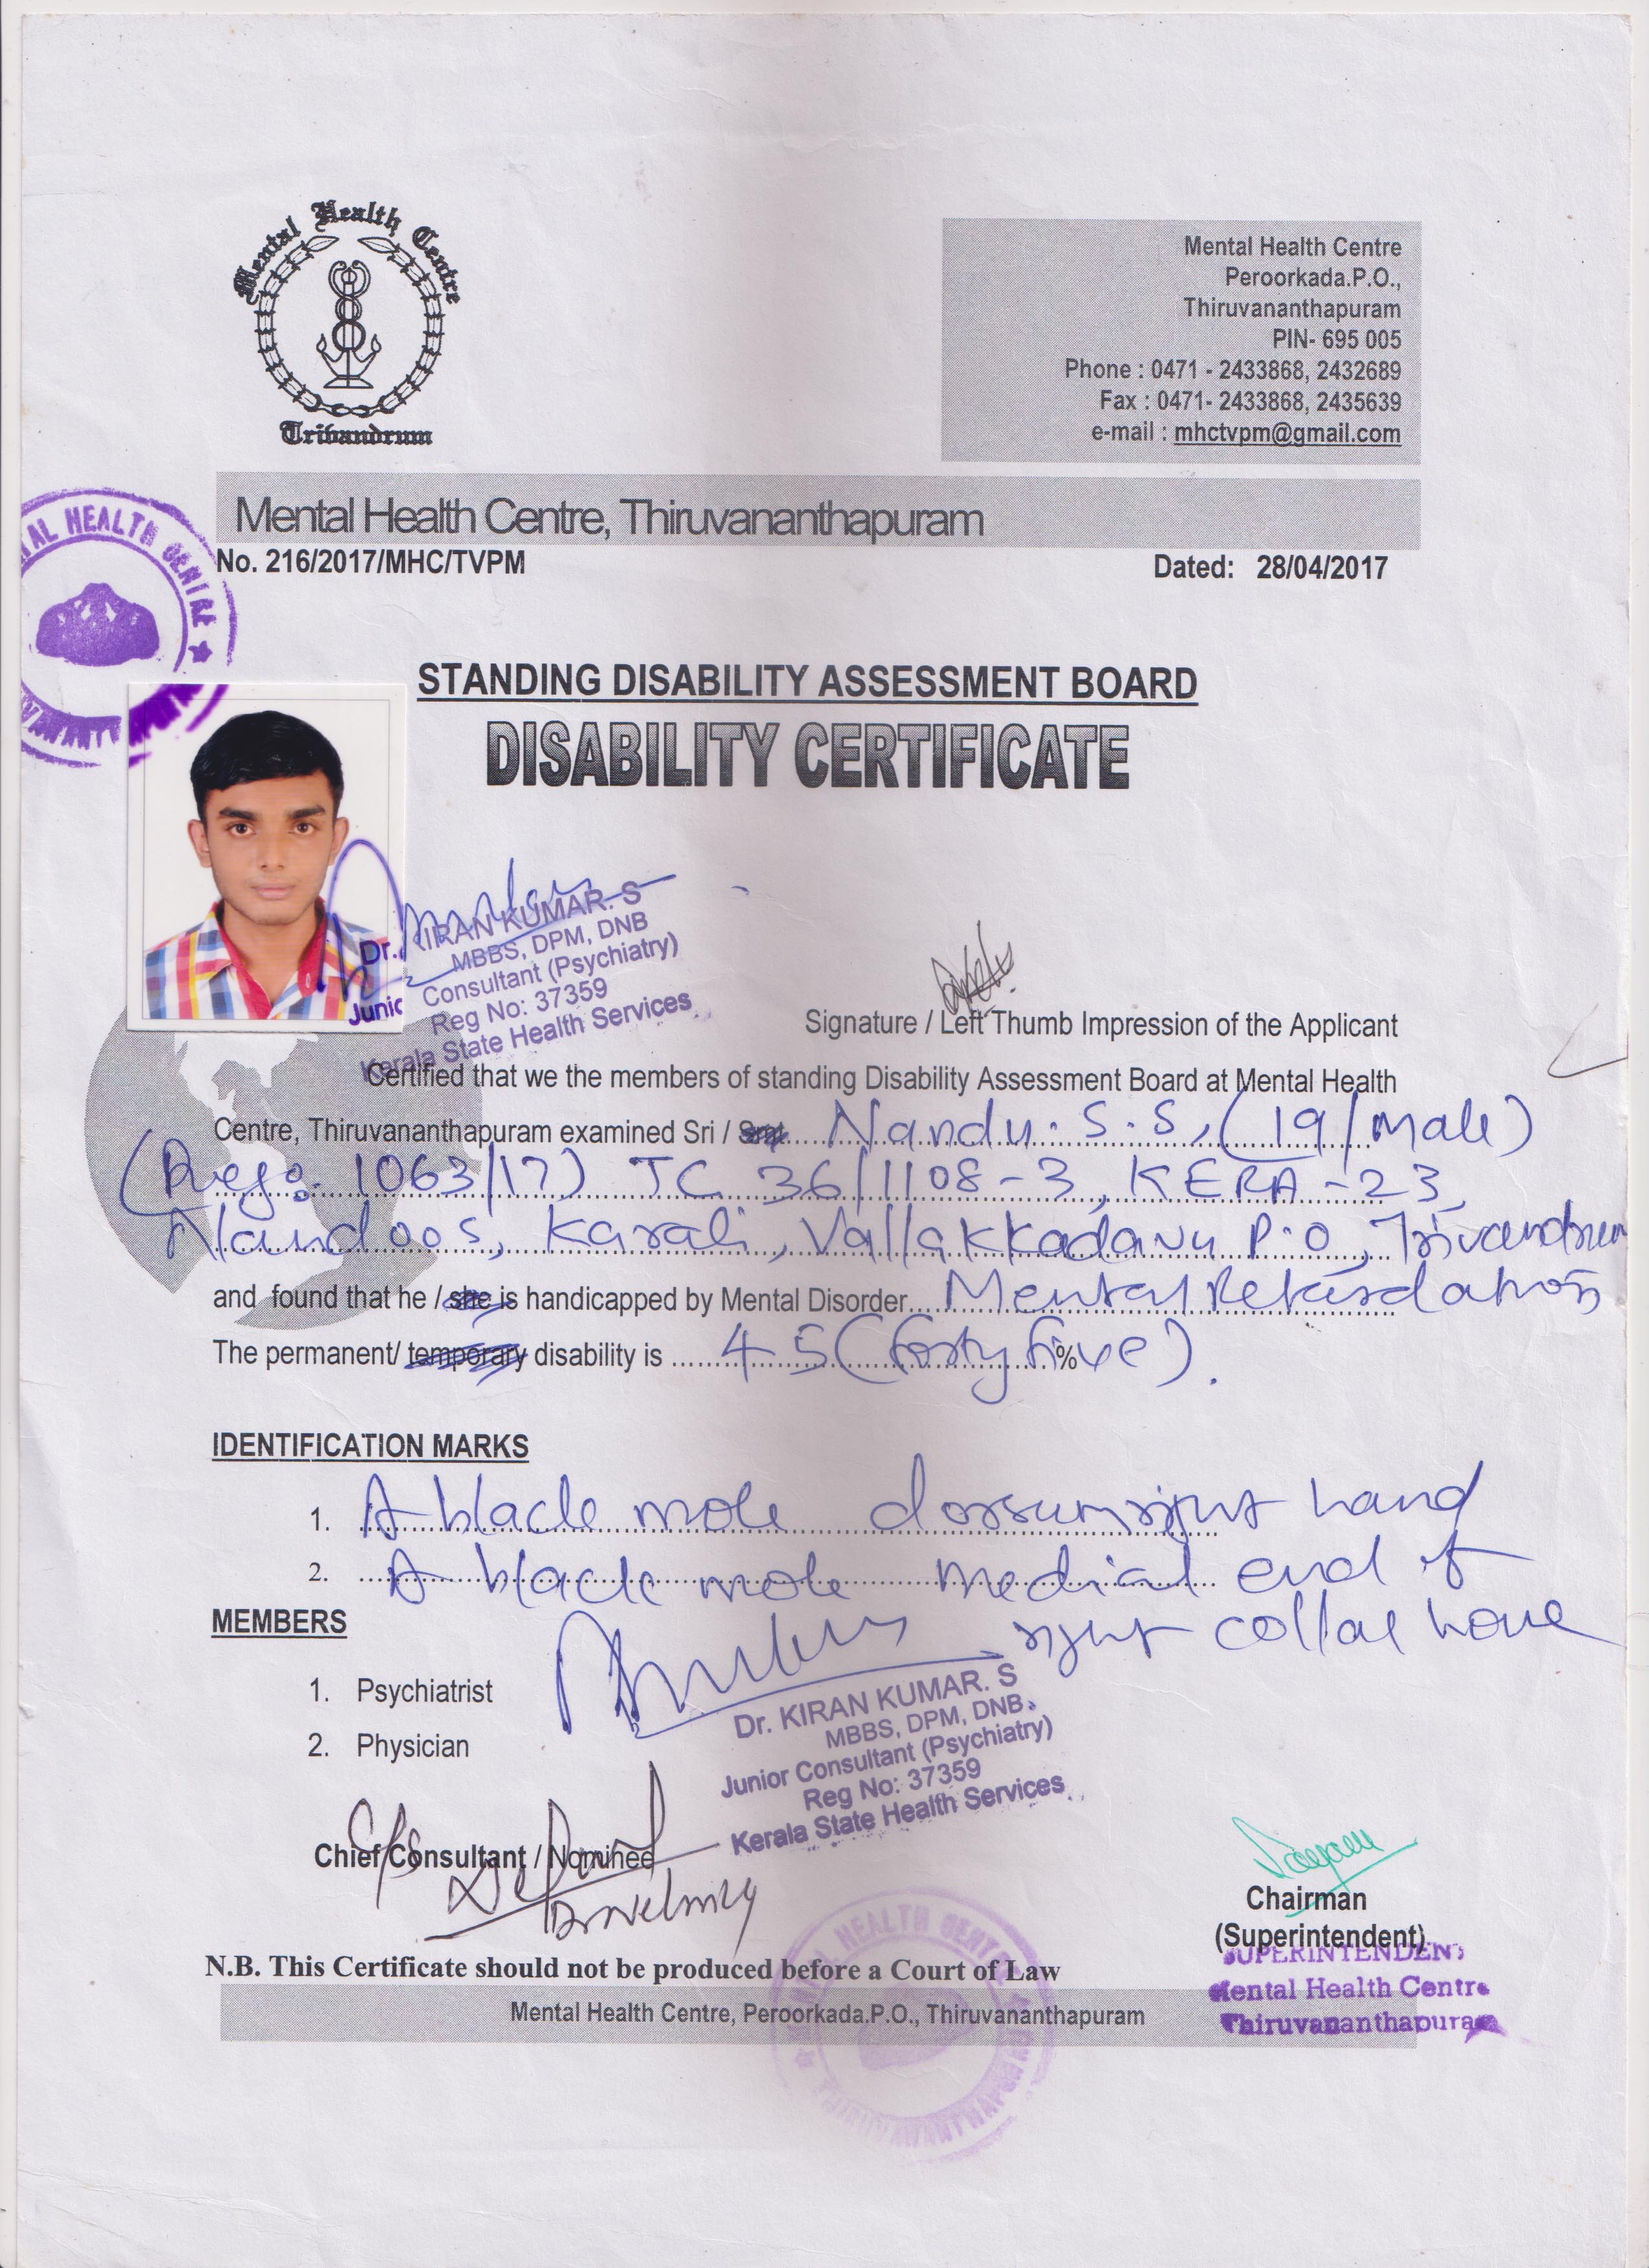 Mental Health Centre
Trivandrum
Mental Health Centre
Peroorkada.P.O.,
Thiruvananthapuram
PIN- 695 005
Phone : 0471 - 2433868, 2432689
Fax : 0471- 2433868, 2435639
e-mail : mhctvpm@gmail.com
Mental Health Centre, Thiruvananthapuram
No. 216/2017/MHC/TVPM Dated: 28/04/2017
HEALTH CENTRE
STANDING DISABILITY ASSESSMENT BOARD
DISABILITY CERTIFICATE
Dr. KIRAN KUMAR. S
MBBS, DPM, DNB
Junior Consultant (Psychiatry)
Reg No: 37359
Kerala State Health Services
Signature / Left Thumb Impression of the Applicant
Certified that we the members of standing Disability Assessment Board at Mental Health
Centre, Thiruvananthapuram examined Sri / Smt. Nandu. S. S, (19/Male)
(Reg: 1063/17) TC 36/1108-3, KERA-23,
Nandoos, Karali, Vallakkadavu P.O, Trivandrum
and found that he / she is handicapped by Mental Disorder Mental Retardation
The permanent/ temporary disability is 45 (forty five) %.
IDENTIFICATION MARKS
1. A black mole dorsum right hand
2. A black mole medial end of
right collar bone
MEMBERS
1. Psychiatrist
2. Physician
Dr. KIRAN KUMAR. S
MBBS, DPM, DNB
Junior Consultant (Psychiatry)
Reg No: 37359
Kerala State Health Services
Chief Consultant / Nominee
Chairman
(Superintendent)
SUPERINTENDENT
Mental Health Centre
Thiruvananthapuram
N.B. This Certificate should not be produced before a Court of Law
Mental Health Centre, Peroorkada.P.O., Thiruvananthapuram